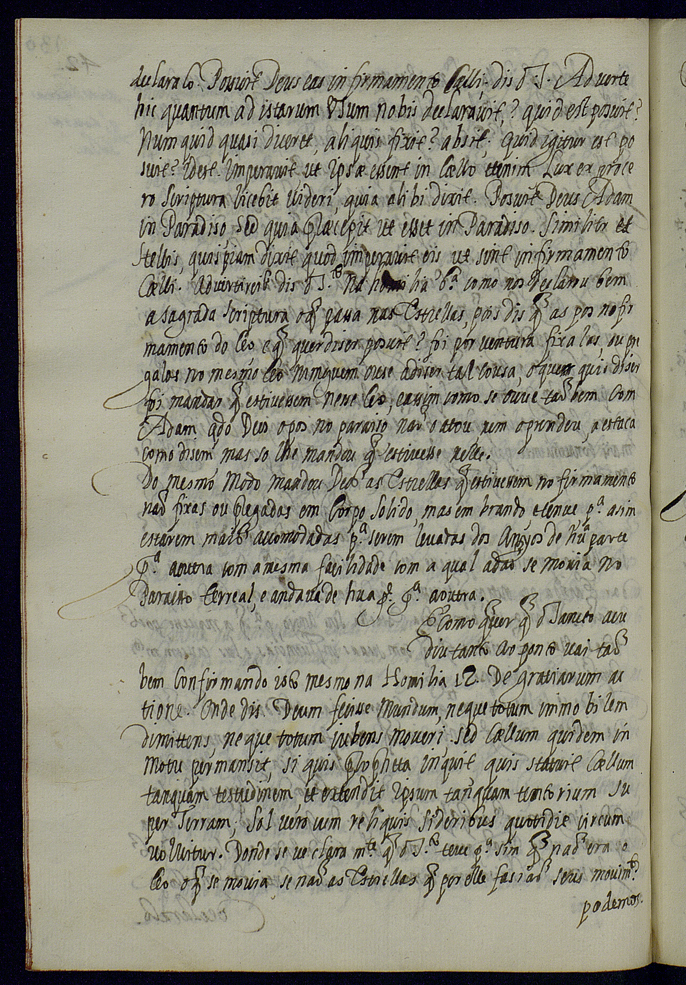 declaralo. Posuit Deus eas in firmamento Cælli. dis o S. Adverte
hic quantum ad istarum usum nobis declaravit? quid est posuit?
Numquid quasi diceret, aliquis fixit? absit. Quid igitur est po
suit? Idest. Imperavit ut ipsæ essent in Cællo etenim. Lux ex proce
ro Scriptura licebit videri, quia alibi dixit. Posuit Deus Adam
in Paradiso sed quia præcepit ut esset in Paradiso. Similitr et
stellis, quispiam dixit quod imperavit eis ut sint in firmamento
Cælli. Advertireis dis o S.to na homilia 6ª como nos declarou bem
a sagrada scriptura o q̃ passa nas Estrellas, pois dis q̃ as pos no fir
mamento do Ceo e q̃ quer diser posuit? foi por ventura fixalas, ou pe
galas no mesmo Ceo ninguem ouse a diser tal cousa, o que quis diser
foi mandar q̃ estivessem nesse Ceo, e assim como se ouve tãobem com
Adam qdo Deos o pos no paraiso não o attou nem o prendeu, a estaca
como disem mas so lhe mandou q̃ estivesse nelle.
Do mesmo Modo mandou Deos as Estrellas q̃ estivessem no firmamento
não fixas ou pegadas em Corpo Solido, mas em brando e tenue pª asim
estarem mais acomodadas pª serem levadas dos Anjos de hũa parte
pª a outra com a mesma facilidade com a qual adão se movia no
Paraiso terreal, e andava de hua p. pª a outra.
E Como quer q̃ o Sancto vai
diu tanto ao ponto vai tão
bem Confirmando isto mesmo na Homilia 12. De gratiarum ac
tione. Onde dis. Deum fecisse Mundum, neque totum immobilem
dimittens, neque totum iubens moveri. Sed Cællum quidem in
motu permansit, si quis propheta inquit quis statuit Cællum
tanquam testudinem et extendit ipsum tanquam tentorium su
per Terram; Sol vero cum reliquis sideribus quotidie circum
volvitur. Donde se ve clara mte q̃ o S.to teve pª sim q̃ não era o
Ceo o q̃ se movia se não as Estrellas q̃ por elle fasião seus movim.tos
podemos.